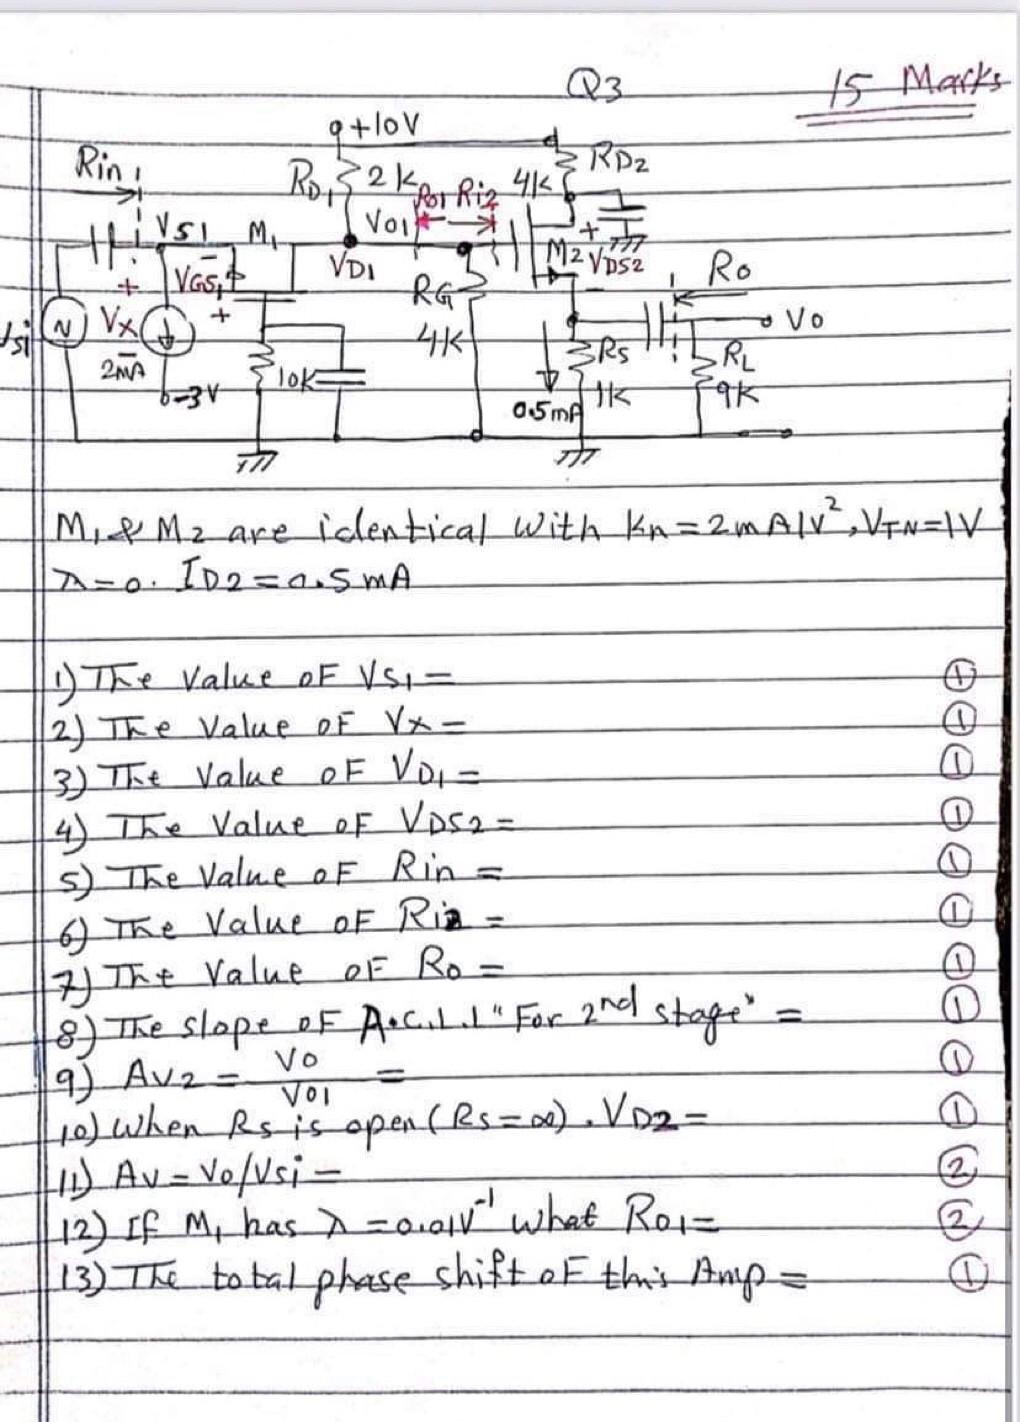 Q3 15 Marks
+10V
Rin RD1 2K Ro1 Ri2 4K RD2
VS1 M1 Vo1
VGS1 VD1 RG M2 VDS2 Ro
Vsi Vx 4K RS RL Vo
2mA -3V 10K 0.5mA 1K 9K
M1 & M2 are identical with Kn=2mA/V², VTN=1V
λ=0. ID2=0.5mA
1) The value of VS1= ①
2) The Value of Vx= ①
3) The Value of VD1= ①
4) The Value of VDS2= ①
5) The Value of Rin = ①
6) The Value of Ri2 = ①
7) The Value of Ro = ①
8) The slope of A.C.L.L "For 2nd stage" = ①
9) AV2 = Vo/Vo1 = ①
10) When Rs is open (Rs=∞). VD2= ①
11) Av=Vo/Vsi= ②
12) If M1 has λ=0.01V⁻¹ what Ro1= ②
13) The total phase shift of this Amp= ①